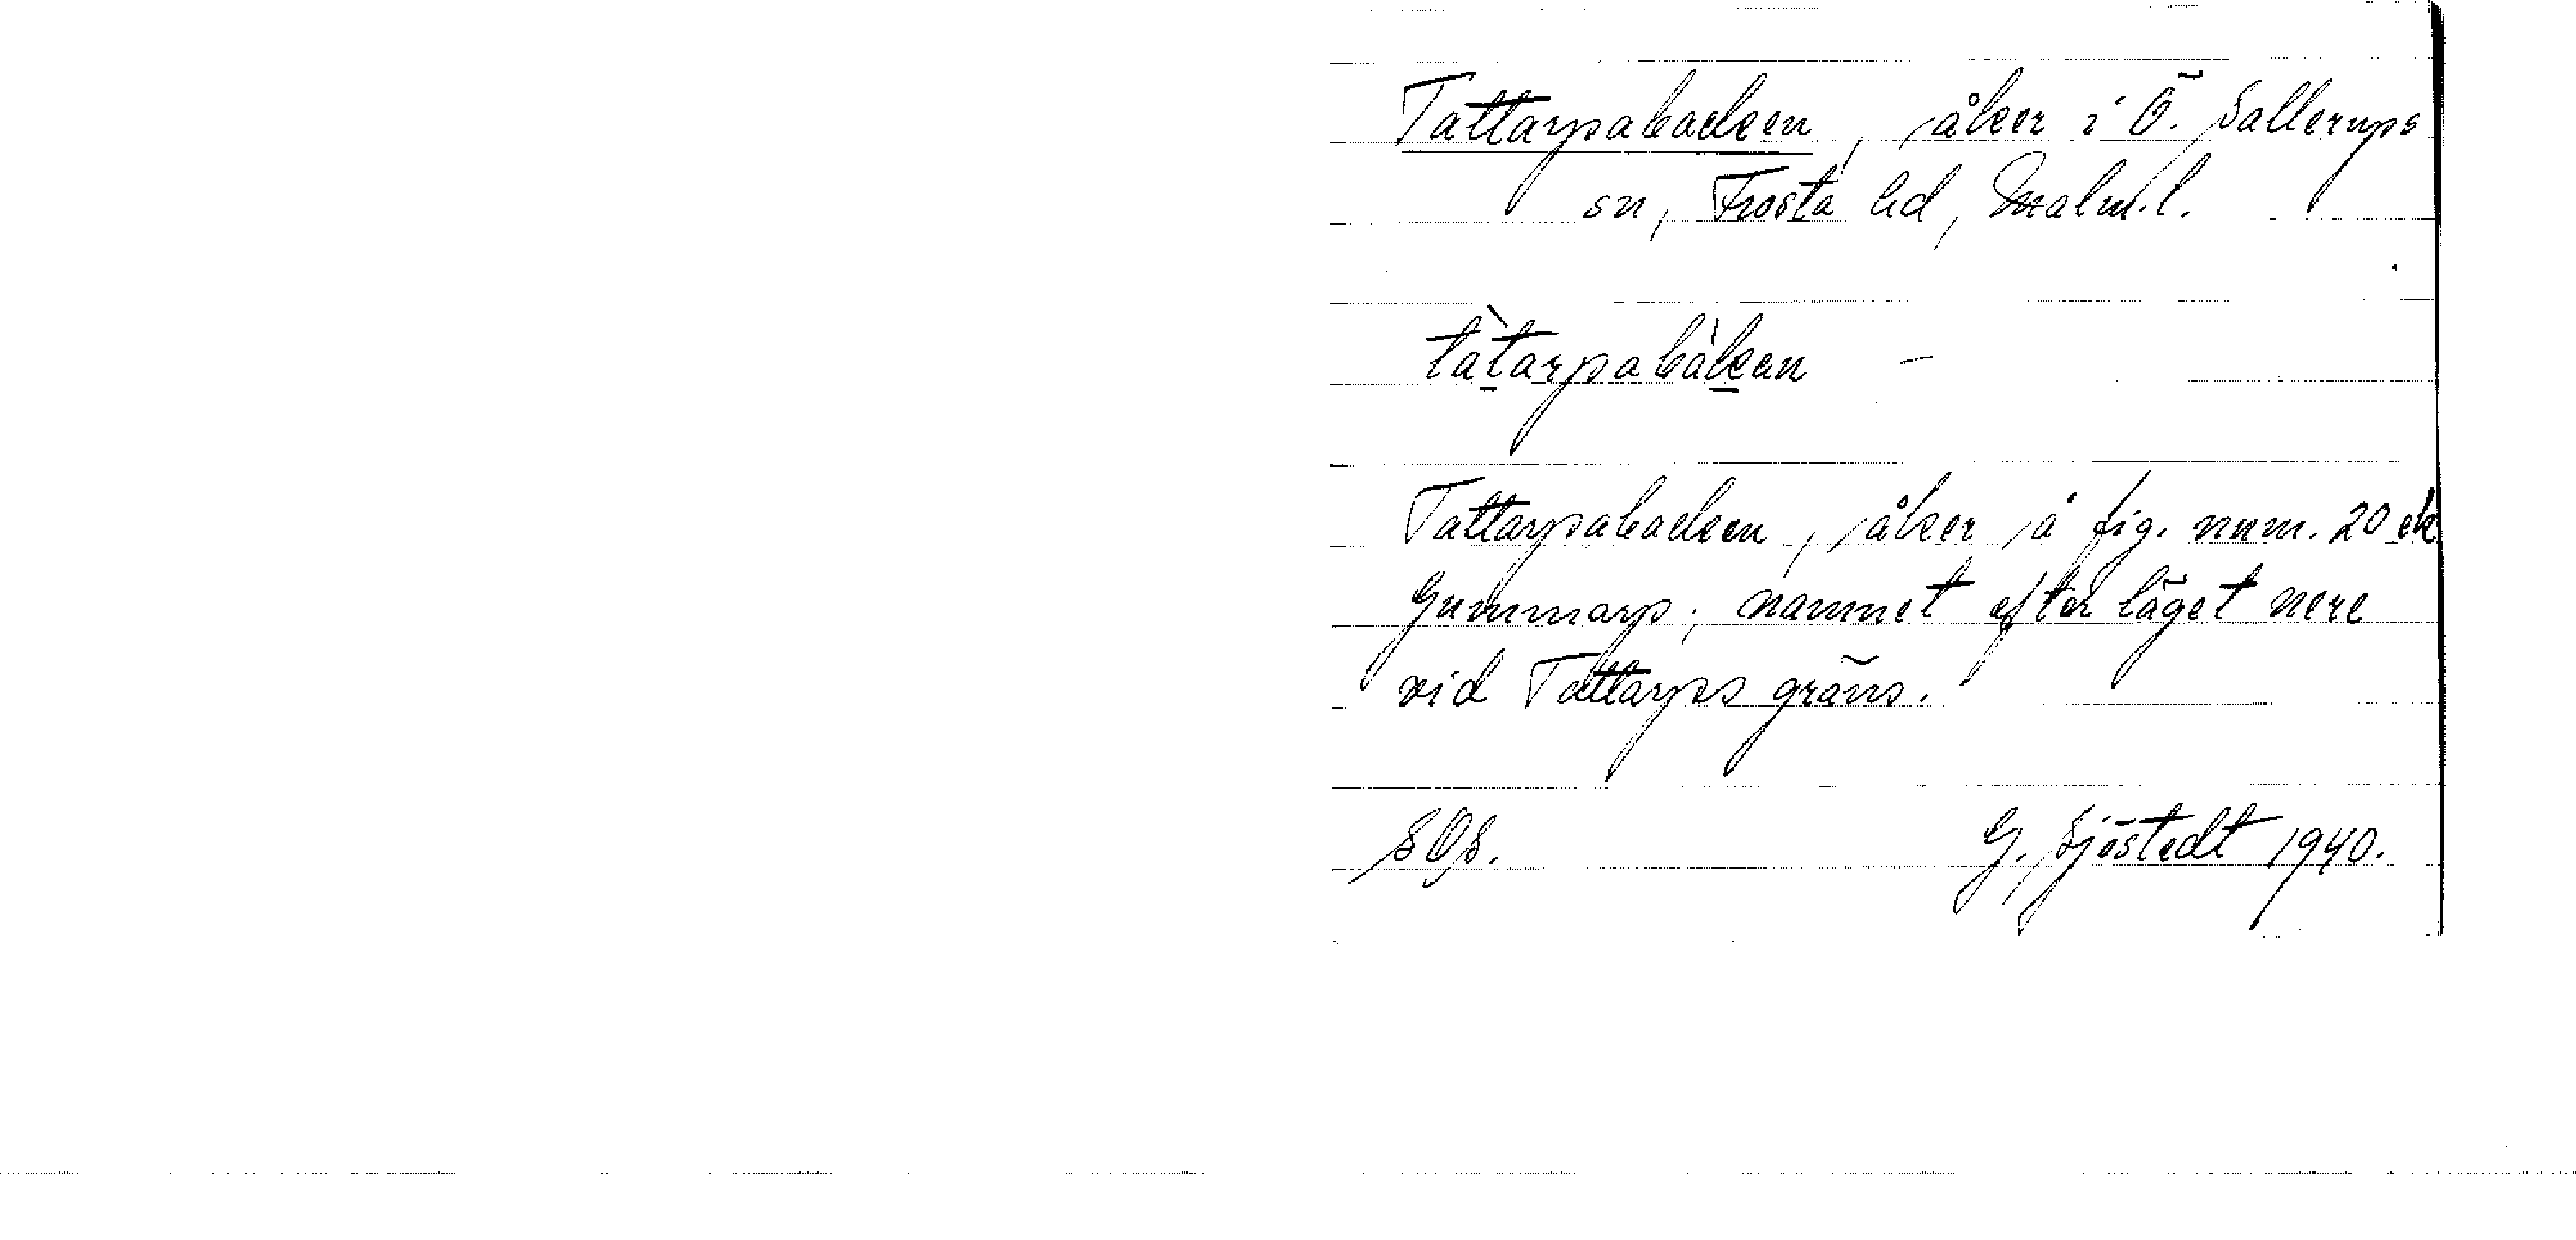 Tattarpabacken, åker i Ö. Sallerups
sn, Frosta hd, Malm.l.
tàtarpabàkan –
Tattarpabacken, åker å fig. num. 20 ek
Gummarp; namnet efter läget nere
vid Tattarps gräns.
SOS. G. Sjöstedt 1940.